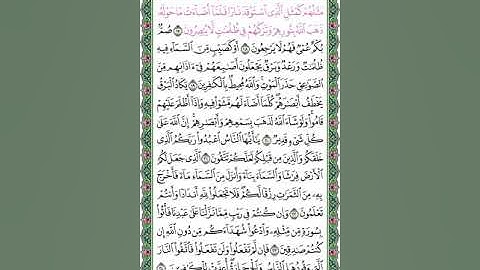 مَثَلُهُمْ كَمَثَلِ ٱلَّذِى ٱسْتَوْقَدَ نَارًا فَلَمَّآ أَضَآءَتْ مَا حَوْلَهُۥ
ذَهَبَ ٱللَّهُ بِنُورِهِمْ وَتَرَكَهُمْ فِى ظُلُمَٰتٍ لَّا يُبْصِرُونَ ١٧ صُمٌّۢ
بُكْمٌ عُمْىٌ فَهُمْ لَا يَرْجِعُونَ ١٨ أَوْ كَصَيِّبٍ مِّنَ ٱلسَّمَآءِ فِيهِ
ظُلُمَٰتٌ وَرَعْدٌ وَبَرْقٌ يَجْعَلُونَ أَصَٰبِعَهُمْ فِىٓ ءَاذَانِهِم مِّنَ
ٱلصَّوَٰعِقِ حَذَرَ ٱلْمَوْتِ وَٱللَّهُ مُحِيطٌۢ بِٱلْكَٰفِرِينَ ١٩ يَكَادُ ٱلْبَرْقُ
يَخْطَفُ أَبْصَٰرَهُمْ كُلَّمَآ أَضَآءَ لَهُم مَّشَوْا۟ فِيهِ وَإِذَآ أَظْلَمَ عَلَيْهِمْ
قَامُوا۟ وَلَوْ شَآءَ ٱللَّهُ لَذَهَبَ بِسَمْعِهِمْ وَأَبْصَٰرِهِمْ إِنَّ ٱللَّهَ عَلَىٰ
كُلِّ شَىْءٍ قَدِيرٌ ٢٠ يَٰٓأَيُّهَا ٱلنَّاسُ ٱعْبُدُوا۟ رَبَّكُمُ ٱلَّذِى
خَلَقَكُمْ وَٱلَّذِينَ مِن قَبْلِكُمْ لَعَلَّكُمْ تَتَّقُونَ ٢١ ٱلَّذِى جَعَلَ لَكُمُ
ٱلْأَرْضَ فِرَٰشًا وَٱلسَّمَآءَ بِنَآءً وَأَنزَلَ مِنَ ٱلسَّمَآءِ مَآءً فَأَخْرَجَ
بِهِۦ مِنَ ٱلثَّمَرَٰتِ رِزْقًا لَّكُمْ فَلَا تَجْعَلُوا۟ لِلَّهِ أَندَادًا وَأَنتُمْ
تَعْلَمُونَ ٢٢ وَإِن كُنتُمْ فِى رَيْبٍ مِّمَّا نَزَّلْنَا عَلَىٰ عَبْدِنَا فَأْتُوا۟
بِسُورَةٍ مِّن مِّثْلِهِۦ وَٱدْعُوا۟ شُهَدَآءَكُم مِّن دُونِ ٱللَّهِ إِن
كُنتُمْ صَٰدِقِينَ ٢٣ فَإِن لَّمْ تَفْعَلُوا۟ وَلَن تَفْعَلُوا۟ فَٱتَّقُوا۟ ٱلنَّارَ
ٱلَّتِى وَقُودُهَا ٱلنَّاسُ وَٱلْحِجَارَةُ أُعِدَّتْ لِلْكَٰفِرِينَ ٢٤